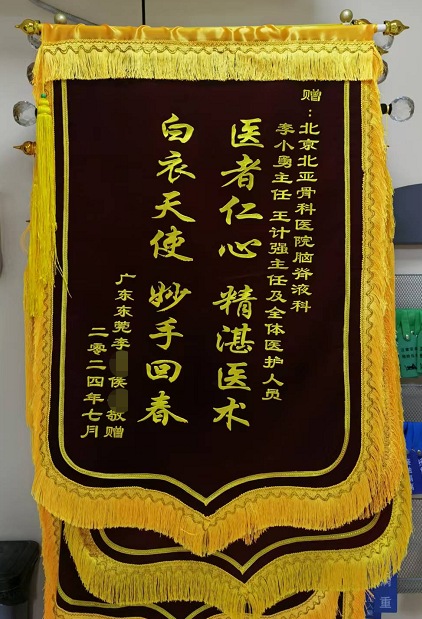 赠：北京北亚骨科医院脑脊液科
李小勇主任 王计强主任及全体医护人员
医者仁心 精湛医术
白衣天使 妙手回春
广东东莞李 侯 敬赠
二零二四年七月
重